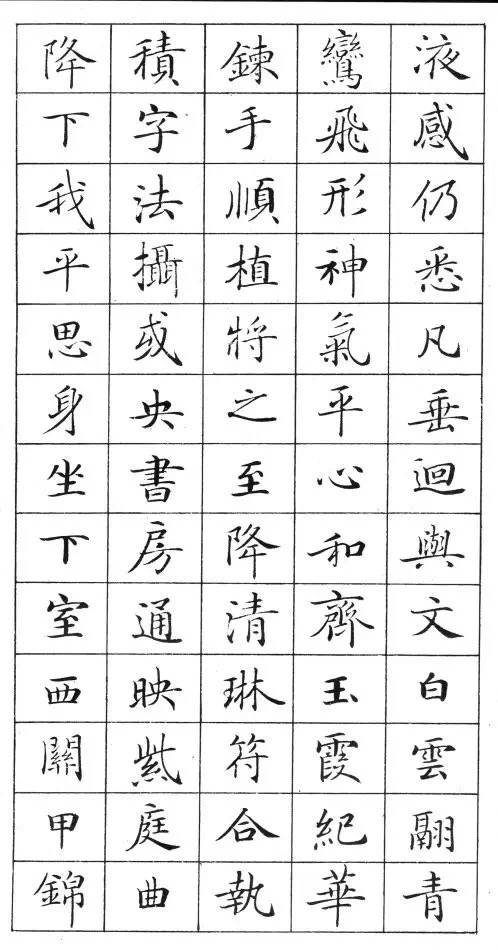 液感仍悉凡垂迴與文白雲翮青
鸞飛形神氣平心和齊玉霞紀華
鍊手順植將之至降清琳符合執
積字法攝或央書房通映紫庭曲
降下我平思身坐下室西關甲錦